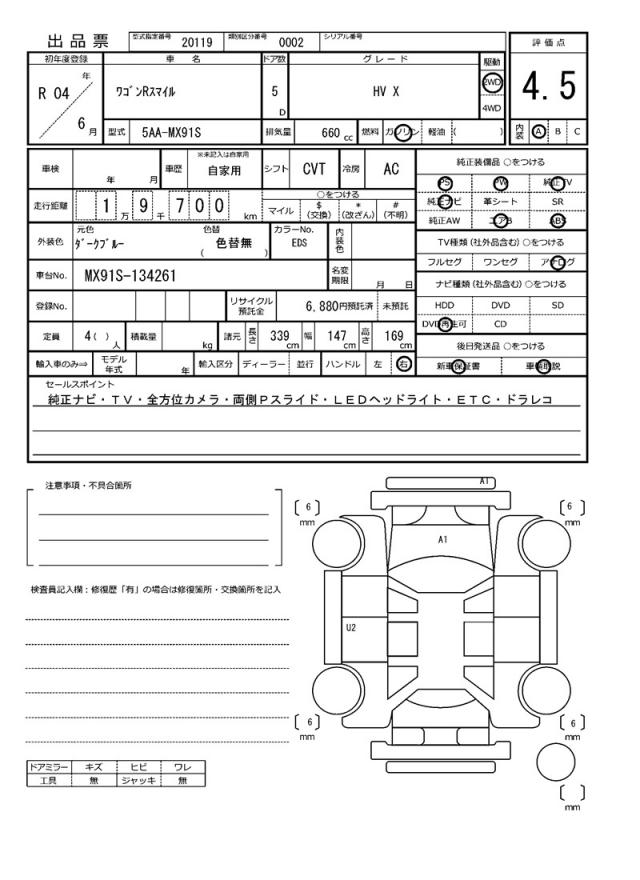 出品票 型式指定番号 20119 類別区分番号 0002 シリアル番号
評価点
4.5
内装 A B C
初年度登録 車名 ドア数 グレード 駆動
R 04 年 6 月 ワゴンRスマイル 5 D HV X 2WD 4WD
型式 5AA-MX91S 排気量 660 cc 燃料 ガソリン 軽油 ( )
車検 年 月 車歴 ※未記入は自家用 自家用 シフト CVT 冷房 AC
走行距離 1 万 9 千 7 0 0 km ○をつける
マイル $(交換) *(改ざん) #(不明)
外装色 元色 ダークブルー 色替 ( 色替無 ) カラーNo. EDS 内装色
車台No. MX91S-134261 名変期限 月 日
登録No. リサイクル預託金 6,880円預託済 未預託
定員 4( ) 人 積載量 kg 諸元 長さ 339 cm 幅 147 cm 高さ 169 cm
輸入車のみ⇒ モデル年式 年 輸入区分 ディーラー 並行 ハンドル 左 右
純正装備品 ○をつける
PS PW 純正TV
純正ナビ 革シート SR
純正AW エアB ABS
TV種類(社外品含む) ○をつける
フルセグ ワンセグ アナログ
ナビ種類(社外品含む) ○をつける
HDD DVD SD
DVD再生可 CD
後日発送品 ○をつける
新車保証書 車輌取説
セールスポイント
純正ナビ・TV・全方位カメラ・両側Pスライド・LEDヘッドライト・ETC・ドラレコ
注意事項・不具合箇所
検査員記入欄：修復歴「有」の場合は修復箇所・交換箇所を記入
A1
[ 6 ] mm
[ 6 ] mm
A1
U2
[ 6 ] mm
[ 6 ] mm
[ ] mm
ドアミラー キズ ヒビ ワレ
工具 無 ジャッキ 無